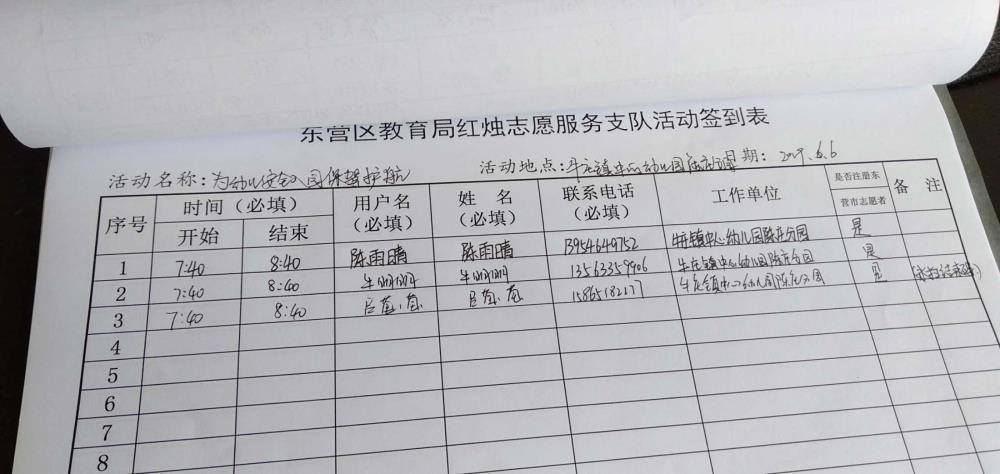 东营区教育局红烛志愿服务支队活动签到表
活动名称:为幼儿安全入园保驾护航 活动地点:牛庄镇中心幼儿园陈庄 日期: 6.6
序号 时间(必填) 用户名(必填) 姓名(必填) 联系电话(必填) 工作单位 是否注册东营市志愿者 备注
开始 结束
1 7:40 8:40 陈雨晴 陈雨晴 13954649752 牛庄镇中心幼儿园陈庄分园 是
2 7:40 8:40 牛 牛 13563359906 牛庄镇中心幼儿园陈庄分园 是
3 7:40 8:40 吕 吕 15865182177 牛庄镇中心幼儿园陈庄分园 是
4
5
6
7
8